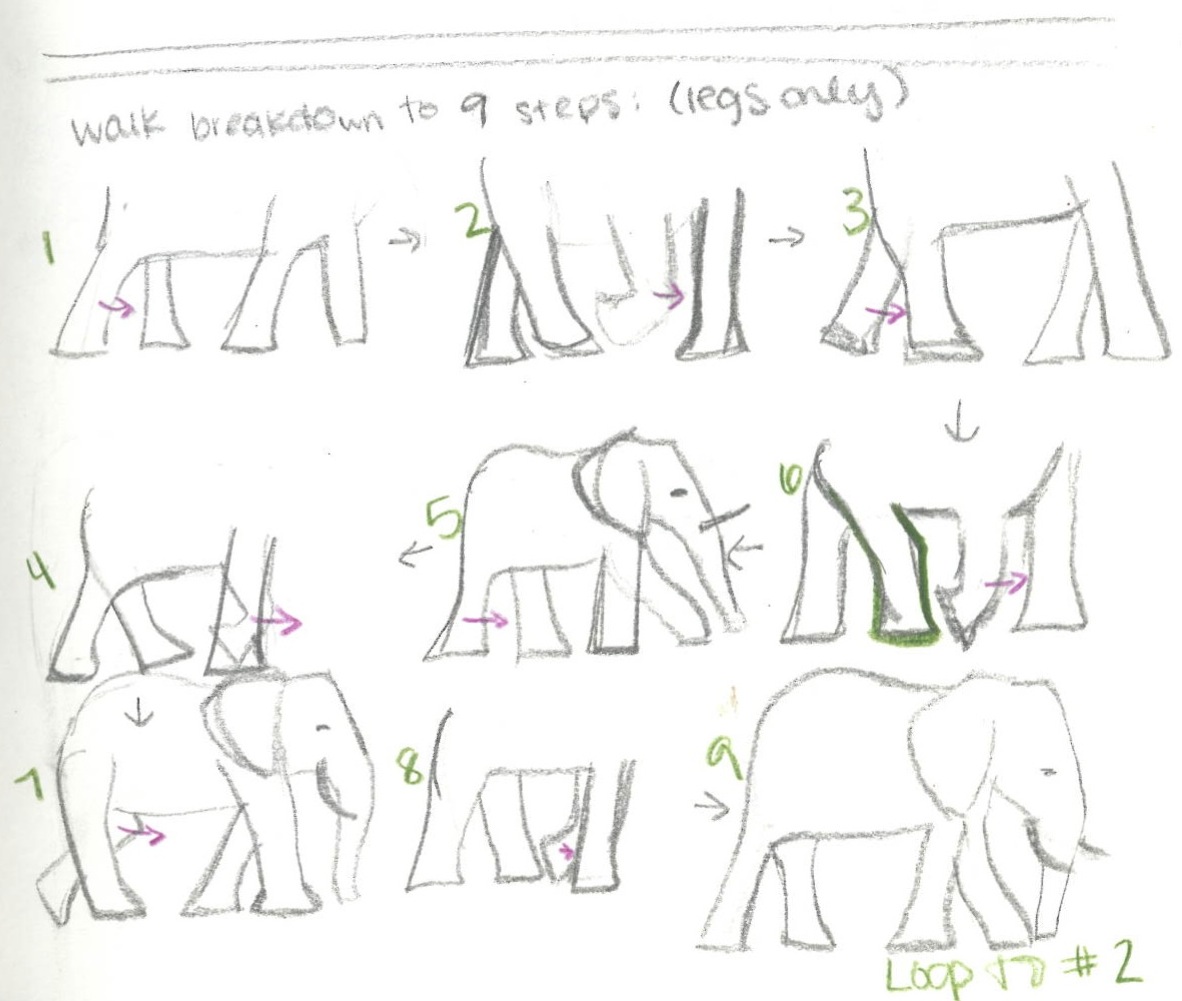 walk breakdown to 9 steps: (legs only)
1
2
3
4
5
6
7
8
9
Loop to #2